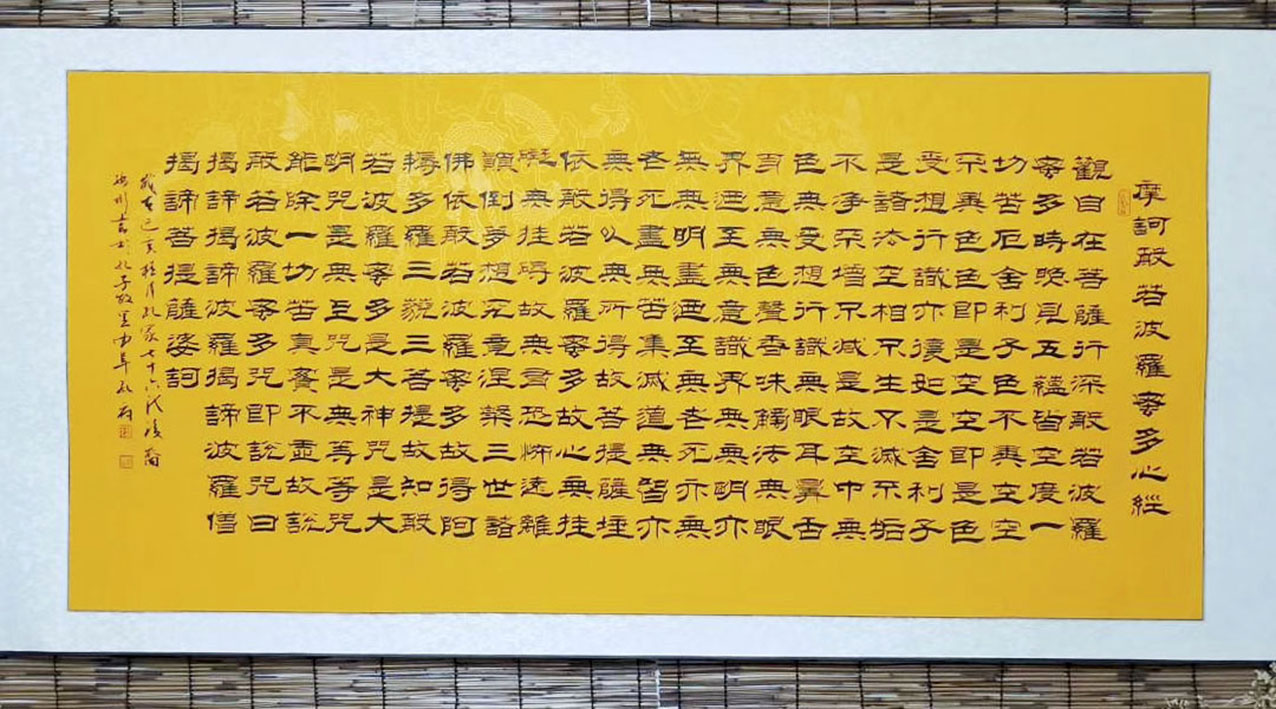 摩訶般若波羅蜜多心經
觀自在菩薩行深般若波羅
蜜多時照見五蘊皆空度一
切苦厄舍利子色不異空空
不異色色即是空空即是色
受想行識亦復如是舍利子
是諸法空相不生不滅不垢
不淨不增不減是故空中無
色無受想行識無眼耳鼻舌
身意無色聲香味觸法無眼
界迺至無意識界無無明亦
無無明盡迺至無老死亦無
老死盡無苦集滅道無智亦
無得以無所得故菩提薩埵
依般若波羅蜜多故心無挂
礙無挂碍故無有恐怖遠離
顛倒夢想究竟涅槃三世諸
佛依般若波羅蜜多故得阿
耨多羅三藐三菩提故知般
若波羅蜜多是大神咒是大
明咒是無上咒是無等等咒
能除一切苦真實不虛故說
般若波羅蜜多咒即說咒曰
揭諦揭諦波羅揭諦波羅僧
揭諦菩提薩婆訶
歲在己亥桂月孔家七十六代後裔
書於孔子故里曲阜